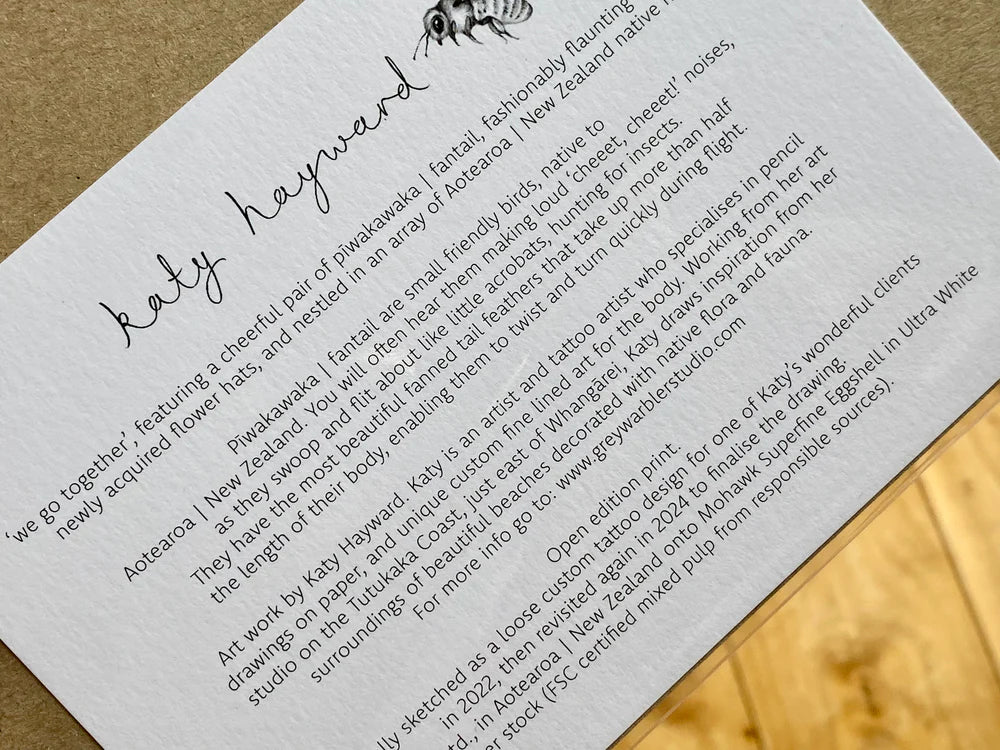 katy hayward
'we go together', featuring a cheerful pair of pīwakawaka | fantail, fashionably flaunting
newly acquired flower hats, and nestled in an array of Aotearoa | New Zealand native
Pīwakawaka | fantail are small friendly birds, native to
Aotearoa | New Zealand. You will often hear them making loud 'cheeet, cheeet!' noises,
as they swoop and flit about like little acrobats, hunting for insects.
They have the most beautiful fanned tail feathers that take up more than half
the length of their body, enabling them to twist and turn quickly during flight.
Art work by Katy Hayward. Katy is an artist and tattoo artist who specialises in pencil
drawings on paper, and unique custom fine lined art for the body. Working from her art
studio on the Tutukaka Coast, just east of Whangārei, Katy draws inspiration from her
surroundings of beautiful beaches decorated with native flora and fauna.
For more info go to: www.greywarblerstudio.com
Open edition print.
lly sketched as a loose custom tattoo design for one of Katy's wonderful clients
in 2022, then revisited again in 2024 to finalise the drawing.
td., in Aotearoa | New Zealand onto Mohawk Superfine Eggshell in Ultra White
er stock (FSC certified mixed pulp from responsible sources).